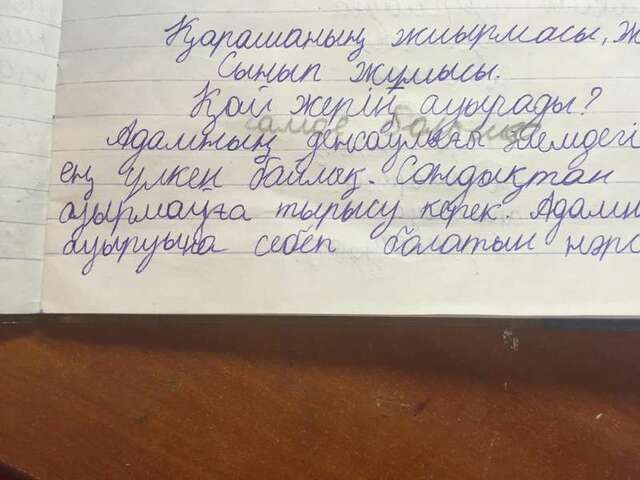 Қарашаның жиырмасы, ж
Сынып жұмысы.
Қай жерің ауырады?
Адамның денсаулығы әлемдегі
ең үлкен байлық. Сондықтан
ауырмауға тырысу керек. Адамн
ауыруына себеп болатын нәрс